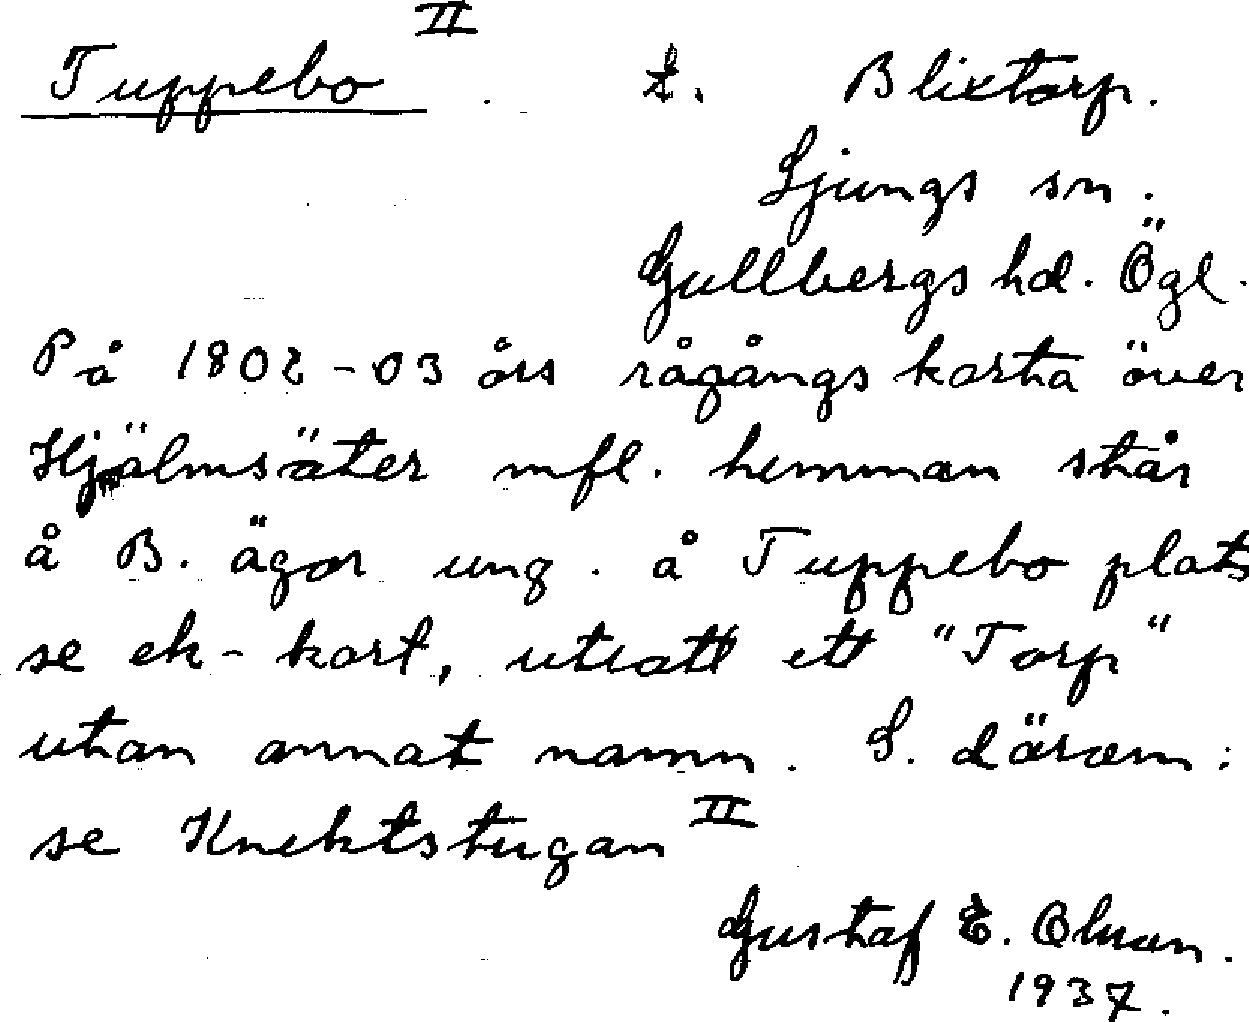 Tuppebo II. t. Blixtorp.
Ljungs sn.
Gullbergs hd. Ögl.
På 1802-03 års rågångs karta över
Hjälmsäter mfl. hemman står
å B. ägor ung. å Tuppebo plats
se ek-kart, utsatt ett "Torp"
utan annat namn. S. därom:
se Knektstugan II
Gustaf E. Olsson.
1937.